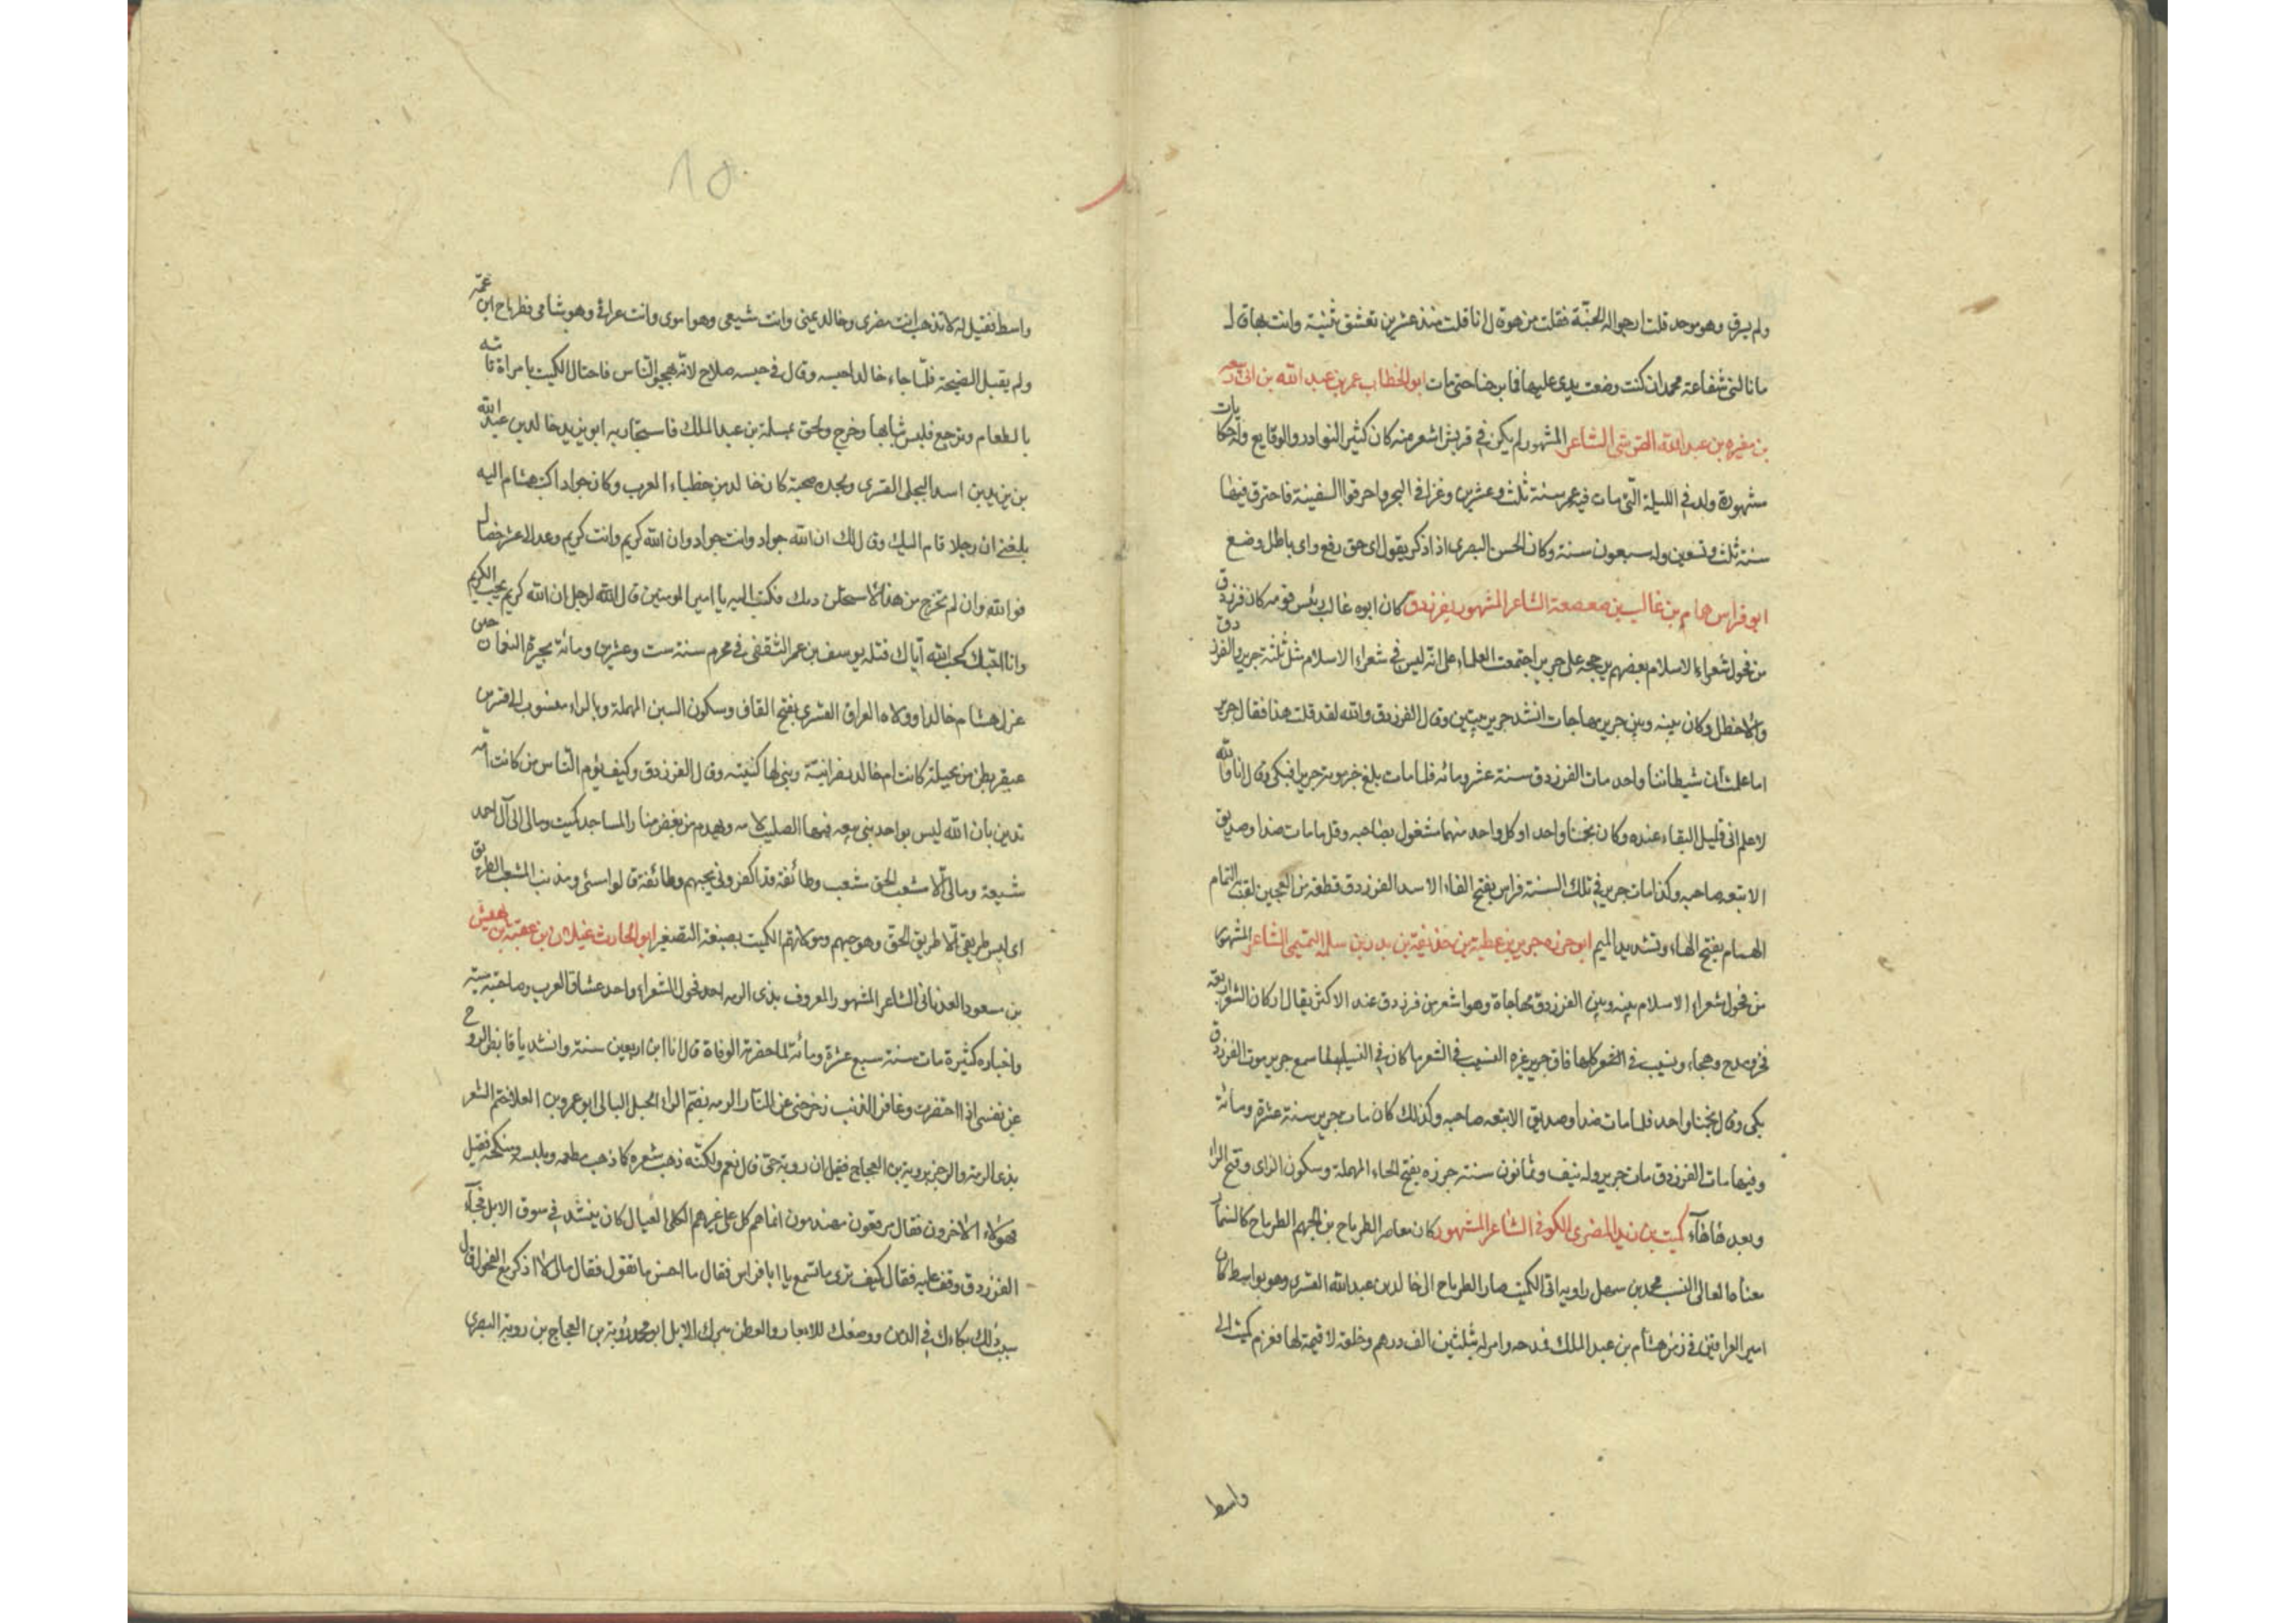 ولم يسرق وهو موحد قلت ارجوا له الجنة فقلت من هو قال انا قلت منذ عشرين تعشق بثينة وانت بها قال
ما نالتنى شفاعة محمد ان كنت وضعت يدى عليها فما برحنا حتى مات ابو الخطاب عمر بن عبد الله بن ابى ربيعه
بن مغيره بن عبد الله القرشى الشاعر المشهور لم يكن فى قريش اشعر منه كان كثير النوادر والوقايع وله حكايات
مشهورة ولد فى الليلة التى مات فيه عمر سنة ثلث وعشرين وغزا فى البحر واحرقوا السفينة فاحترق فيها
سنة ثلث وتسعين وله سبعون سنة وكان الحسن البصرى اذا ذكر يقول اى حق رفع واى باطل وضع
ابو فراس همام بن غالب بن صعصعة الشاعر المشهور بفرزدق كان ابوه غالب رئيس قومه كان فرزدق
من فحول شعراء الاسلام بعضهم يرجحه على جرير اجتمعت العلماء على انه ليس فى شعراء الاسلام مثل ثلثة جرير والفرزدق
والاخطل وكان بينه وبين جرير مهاجات انشد جرير بيتين وقال الفرزدق والله لقد قلت هذا فقال جرير
اما علمت ان شيطاننا واحد مات الفرزدق سنة عشر ومائه فلما مات بلغ خبر موته جريرا فبكى وقال انا والله
لاعلم انى قليل البقاء عنده وكان نجمنا واحد او كل واحد منهما مشغول بصاحبه وقل ما مات ضد او صديق
الا تبعه صاحبه وكذا مات جرير فى تلك السنة فراس بفتح الفاء الاسد الفرزدق قطعة من العجين لقب به التمام
الهمام بفتح الهاء وتشديد الميم ابو حزره جرير بن عطية بن حذيفة بن بدر بن سلمه التميمى الشاعر المشهور
من فحول شعراء الاسلام بينه وبين الفرزدق مهاجاة وهو اشعر من فرزدق عند الاكثر يقال اركان الشعر اربعة
فخر ومدح وهجاء ونسيب فى الفخر كلها فاق جرير غيره النسيب فى الشعر ما كان فى النساء لما سمع جرير موت الفرزدق
بكى وقال نجمنا واحد فلما مات ضد او صديق الا تبعه صاحبه وكذلك كان مات جرير سنة عشرة ومائة
وفيها مات الفرزدق مات جرير وله نيف وثمانون سنة حرزه بفتح الحاء المهملة وسكون الزاى وفتح الراء
وبعدها هاء كميت بن زيد المضرى الكوفى الشاعر المشهور كان معاصر الطرماح بن الجهم الطرماح كالسنمار
معناه العالى النسب محمد بن سهل راويه اتى الكميت صار الطرماح الى خالد بن عبد الله القسرى وهو بواسط كان
امير العراقين فى زمن هشام بن عبد الملك فمدحه وامر له بثلثين الف درهم وخلعة لا قيمة لها فعزم كميت الى
واسط
١٥
واسط فقيل له لا تذهب انت مضرى وخالد يمنى وانت شيعى وهو اموى وانت عراقى وهو شامى فطرماح ابن عمه
ولم يقبل النصيحة فلما جاء خالد احبسه وقال فى حبسه صلاح لانه يهجو الناس فاحتال الكميت بامراة تاتيه
بالطعام وترجع فلبس ثيابها وخرج ولحق بمسلمة بن عبد الملك فاستجار به ابو يزيد خالد بن عبد الله
بن يزيد بن اسد البجلى القسرى ولجده صحبة كان خالد من خطباء العرب وكان جوادا كتب هشام اليه
بلغنى ان رجلا قام اليك وقال لك ان الله جواد وانت جواد وان الله كريم وانت كريم وعد لا عشر خصال
فو الله وان لم تخرج من هذا لاستحلن دمك فكتب اليه يا امير المومنين قال الله لرجل ان الله كريم يحب الكريم
وانا احبك كحب الله اياك قتله يوسف بن عمر الثقفى فى محرم سنة ست وعشرين ومائة بحيرة النعمان حين
عزل هشام خالدا وولاه العراق القسرى بفتح القاف وسكون السين المهملة وبالراء منسوب الى قسر بن
عبقر بطن من بجيلة كانت ام خالد نصرانية وبنى لها كنيسة وقال الفرزدق وكيف يؤم الناس من كانت امه
تدين بان الله ليس بواحد بنى بيعه فيها الصليب لامه وهدم من بغض منار المساجد كميت ومالى الى آل احمد
شيعة ومالى الا مشعب الحق شعب وطائفة قد اكفرونى بحبهم وطائفة قالوا مسئ ومذنب المشعب الطريق
اى ليس طريقى الا طريق الحق وهو حبهم وموكارتهم الكميت بصيغة التصغير ابو الحارث غيلان بن عقبة بن بهيش
بن سعود العدنانى الشاعر المشهور المعروف بذى الرمه احد فحول الشعراء واحد عشاق العرب وصاحبته ميته
واخباره كثيرة مات سنة سبع عشرة ومائة لما حضرته الوفاة قال انا ابن اربعين سنة وانشد يا قابض الروح
عن نفسى اذا احتضرت وغافر الذنب زحزحنى عن النار الرمه بضم الراء الحبل البالى ابو عمرو بن العلا ختم الشعر
بذى الرمة والرجز بروبة بن العجاج فقيل ان روبة حى قال نعم ولكنه ذهب شعره كما ذهب مطعمه وملبسه ومنكحه فقيل
فهؤلاء الاخرون فقال مرقعون مهندمون انما هم كل على غيرهم الكل العيال كان ينشد فى سوق الابل فجاء
الفرزدق وقف عليه فقال كيف ترى ما تسمع يا ابا فراس فقال ما احسن ما تقول فقال مالى لا اذكر مع الفحول قال
سبب ذلك بكاءك فى الدمن ووصفك للابعار والعطن مبرك الابل ابو محمد رؤبة بن العجاج بن روبة البصرى